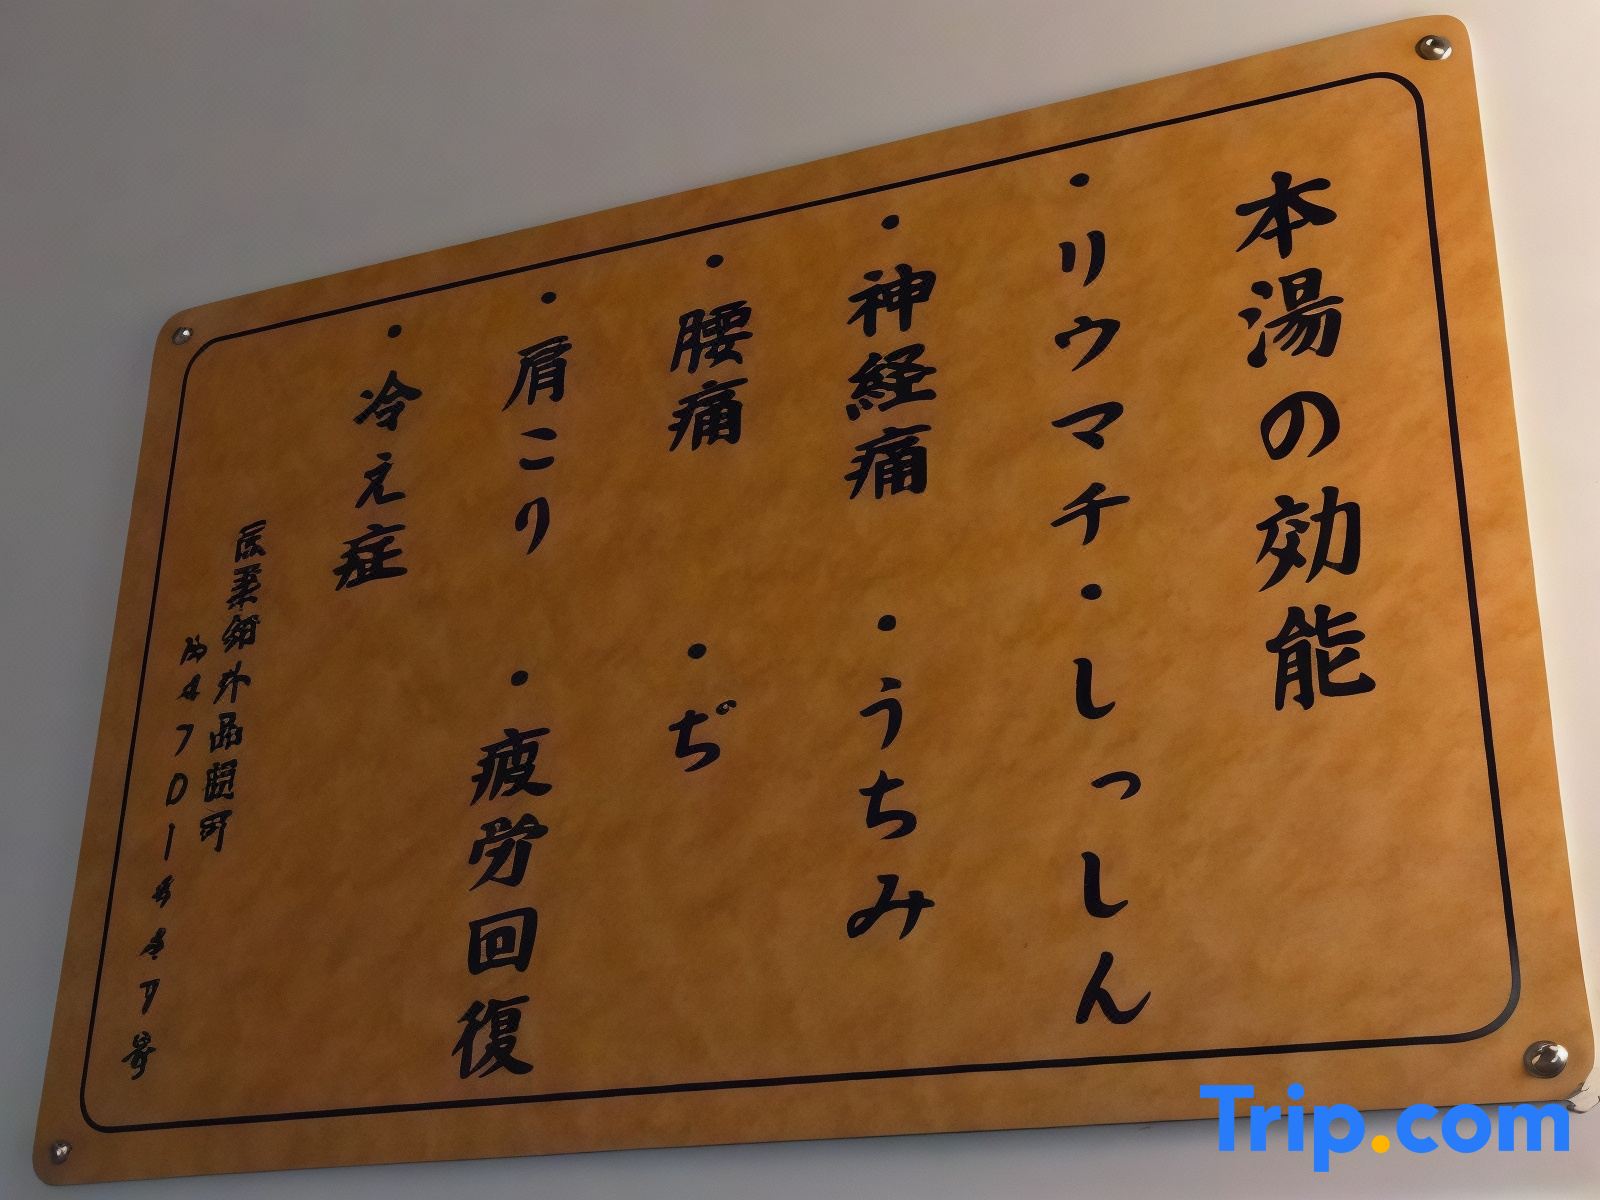 本湯の効能
・リウマチ・しっしん
・神経痛 ・うちみ
・腰痛 ・ぢ
・肩こり ・疲労回復
・冷え症
Trip.com